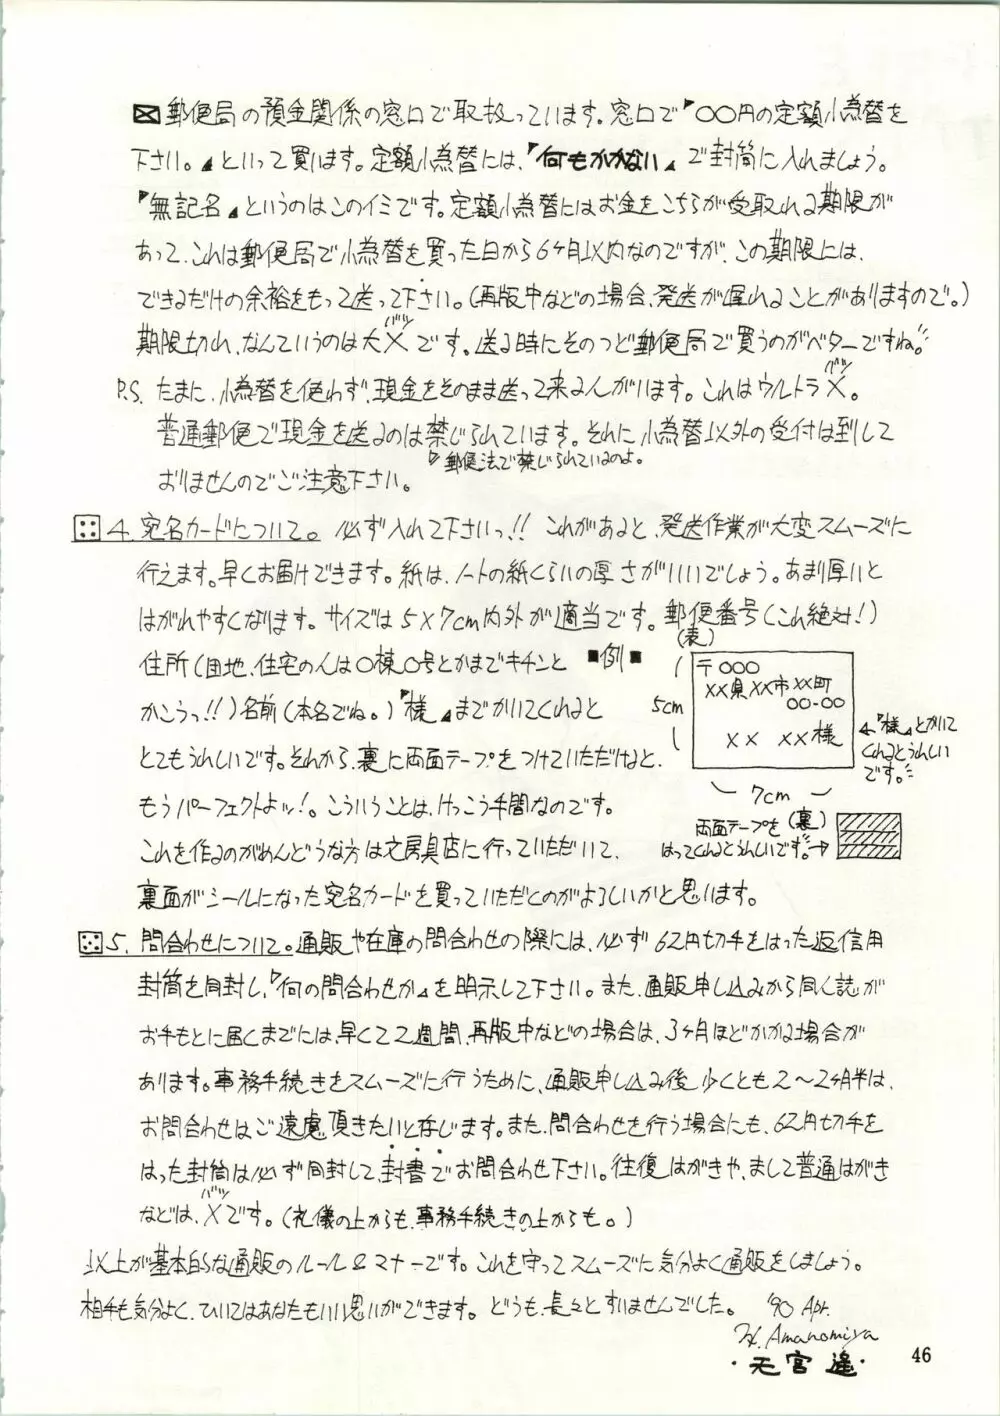 郵便局の預金関係の窓口で取扱っています。窓口で『〇〇円の定額小為替を
下さい。』といって買います。定額小為替には、『何もかかない』で封筒に入れましょう。
『無記名』というのはこのイミです。定額小為替にはお金をこちらが受取れる期限が
あって、これは郵便局で小為替を買った日から6ヶ月以内なのですが、この期限には、
できるだけの余裕をもって送って下さい。(再版中などの場合、発送が遅れることがありますので。)
期限切れ、なんていうのは大×バツです。送る時にそのつど郵便局で買うのがベターですね。
P.S. たまに、小為替を使わず、現金をそのまま送って来る人がいます。これはウルトラ×バツ。
普通郵便で現金を送るのは禁じられています。それに小為替以外の受付は到して
▷郵便法で禁じられているのよ。
おりませんのでご注意下さい。
4. 宛名カードについて。必ず入れて下さいっ!! これがあると、発送作業が大変スムーズに
行えます。早くお届けできます。紙は、ノートの紙くらいの厚さがいいでしょう。あまり厚いと
はがれやすくなります。サイズは5×7cm内外が適当です。郵便番号(これ絶対!)
住所(団地、住宅の人は〇棟〇号とかまでキチンと
かこうっ!!)名前(本名でね。)『様』までかいてくれると
とてもうれしいです。それから、裏に両面テープをつけていただけると、
もうパーフェクトよッ!。こういうことは、けっこう手間なのです。
これを作るのがめんどうな方は文房具店に行っていただいて、
裏面がシールになった宛名カードを買っていただくのがよろしいかと思います。
■例■
(表)
5cm
〒〇〇〇
××県××市××町
〇〇-〇〇
×× ××様
←『様』とかいて
くれるとうれしい
です。
7cm
(裏)
両面テープを
はってくれるとうれしいです。→
5. 問合わせについて。通販や在庫の問合わせの際には、必ず62円切手をはった返信用
封筒を同封し、『何の問合わせか』を明示して下さい。また、通販申し込みから同人誌が
お手もとに届くまでには、早くて2週間、再版中などの場合は、3ヶ月ほどかかる場合が
あります。事務手続きをスムーズに行うために、通販申し込み後 少くとも2〜2ヶ月半は、
お問合わせはご遠慮頂きたいと存じます。また、問合わせを行う場合にも、62円切手を
はった封筒は必ず同封して、封書でお問合わせ下さい。往復はがきや、まして普通はがき
などは、×バツです。(礼儀の上からも、事務手続きの上からも。)
以上が基本的な通販のルール&マナーです。これを守ってスムーズに気分よく通販をしましょう。
相手も気分よく、ひいてはあなたもいい思いができます。どうも、長々とすいませんでした。 '90 Apr.
H. Amanomiya
・天宮 遙・
46